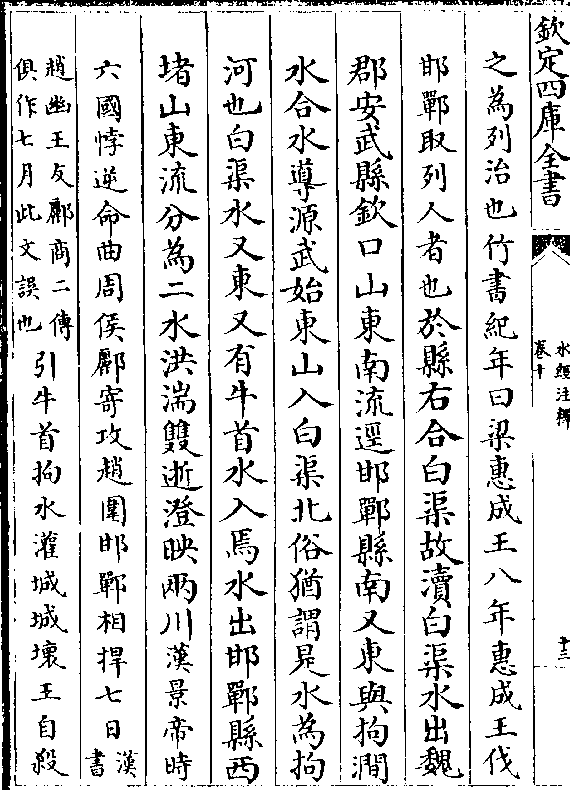 欽定四庫全書
水經注釋
卷十
十三
之為列治也竹書紀年曰梁惠成王八年惠成王伐
邯鄲取列人者也於縣右合白渠故瀆白渠水出魏
郡安武縣欽口山東南流逕邯鄲縣南又東與拘澗
水合水導源武始東山入白渠北俗猶謂是水為拘
河也白渠水又東又有牛首水入焉水出邯鄲縣西
堵山東流分為二水洪湍雙逝澄映兩川漢景帝時
六國悖逆命曲周侯酈寄攻趙圍邯鄲相捍七日漢書
趙幽王友酈商二傳
俱作七月此文誤也引牛首拘水灌城城壞王自殺